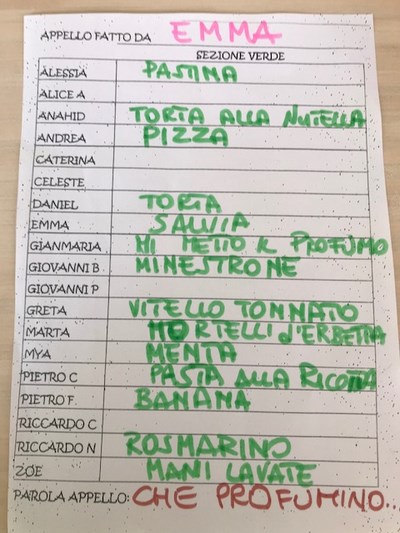 APPELLO FATTO DA EMMA
SEZIONE VERDE
ALESSIA PASTINA
ALICE A
ANAHID TORTA ALLA NUTELLA
ANDREA PIZZA
CATERINA
CELESTE
DANIEL TORTA
EMMA SALVIA
GIANMARIA MI METTO IL PROFUMO
GIOVANNI B MINESTRONE
GIOVANNI P
GRETA VITELLO TONNATO
MARTA MORTELLI d'ERBETTA
MYA MENTA
PIETRO C PASTA ALLA RICOTTA
PIETRO F. BANANA
RICCARDO C
RICCARDO N ROSMARINO
ZOE MANI LAVATE
PAROLA APPELLO: CHE PROFUMINO...